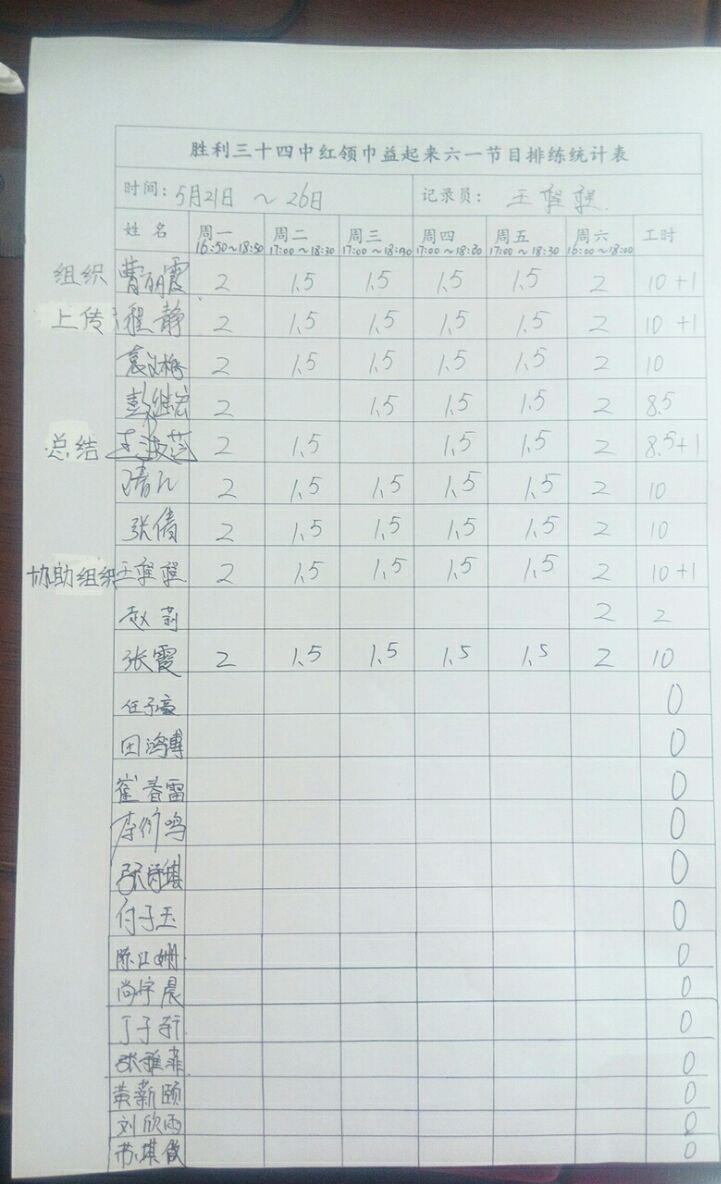 胜利三十四中红领巾益起来六一节目排练统计表
时间: 5月21日 ~ 26日 记录员:
姓名 周一 周二 周三 周四 周五 周六 工时
16:50~18:50 17:00~18:30 17:00~18:30 17:00~18:30 17:00~18:30 16:00~18:00
组织 曹丽霞 2 1.5 1.5 1.5 1.5 2 10+1
上传 程静 2 1.5 1.5 1.5 1.5 2 10+1
2 1.5 1.5 1.5 1.5 2 10
彭继宏 2 1.5 1.5 1.5 2 8.5
总结 2 1.5 1.5 1.5 2 8.5+1
2 1.5 1.5 1.5 1.5 2 10
张倩 2 1.5 1.5 1.5 1.5 2 10
协助组织 2 1.5 1.5 1.5 1.5 2 10+1
赵莉 2 2
张霞 2 1.5 1.5 1.5 1.5 2 10
任子豪 0
田鸿博 0
崔春雷 0
0
0
付子玉 0
0
尚宇晨 0
0
张雅菲 0
黄新颐 0
刘欣雨 0
0